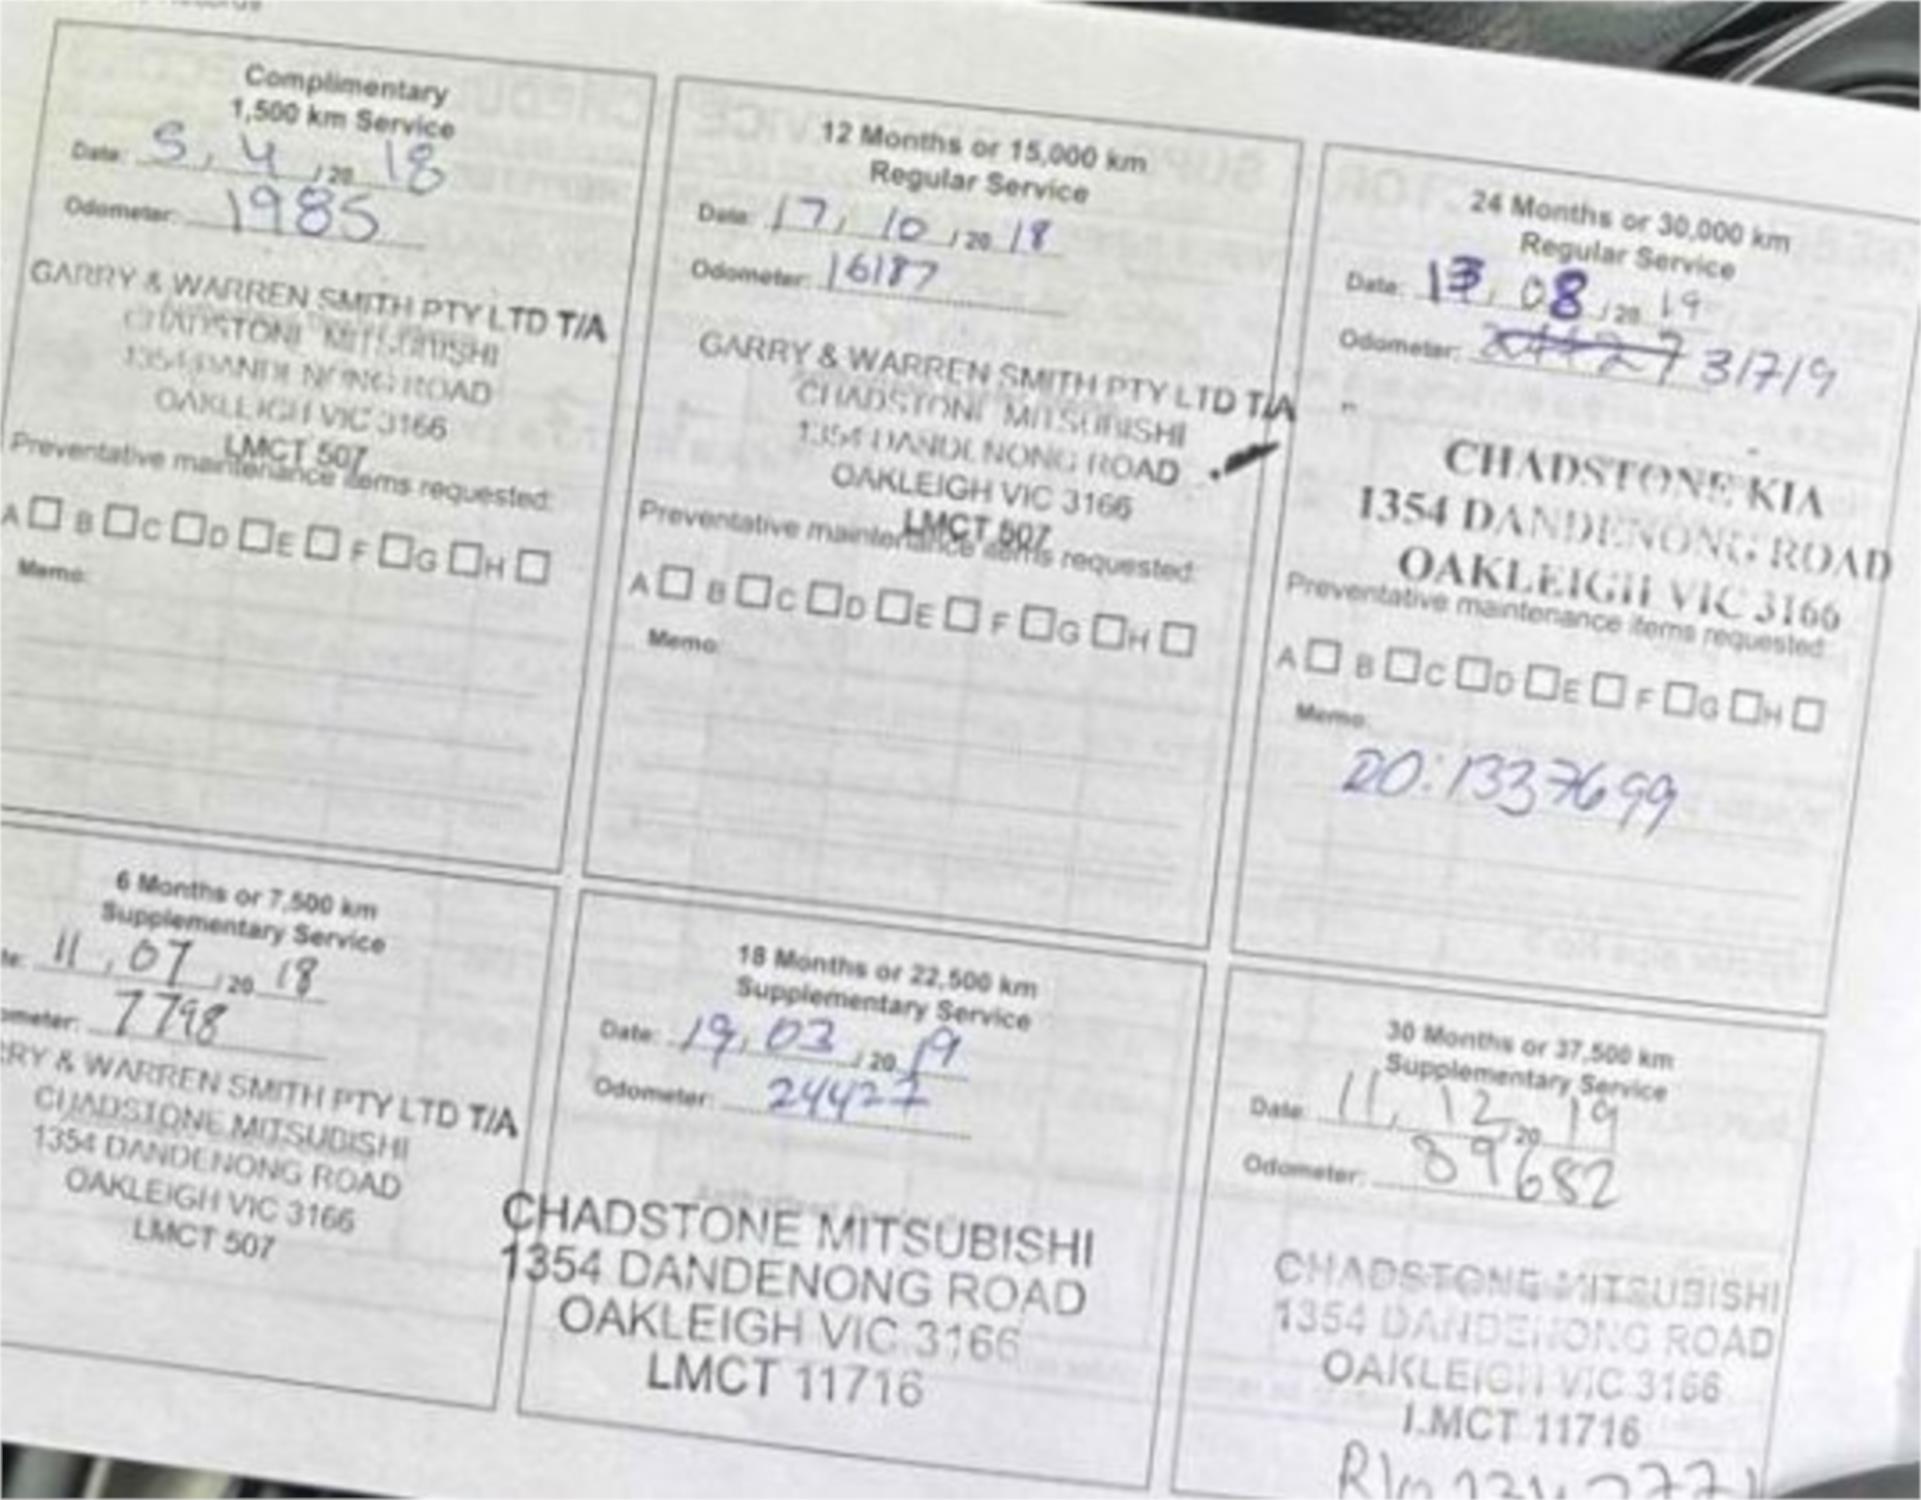 Complimentary
1,500 km Service
Date: 5, 4 / 20 18
Odometer: 1985
GARRY & WARREN SMITH PTY LTD T/A
CHADSTONE MITSUBISHI
1354 DANDENONG ROAD
OAKLEIGH VIC 3166
LMCT 507
Preventative maintenance items requested:
A B C D E F G H
Memo:
12 Months or 15,000 km
Regular Service
Date: 17, 10 / 20 18
Odometer: 16187
GARRY & WARREN SMITH PTY LTD T/A
CHADSTONE MITSUBISHI
1354 DANDENONG ROAD
OAKLEIGH VIC 3166
LMCT 507
Preventative maintenance items requested:
A B C D E F G H
Memo:
24 Months or 30,000 km
Regular Service
Date: 13, 08 / 20 19
Odometer: 24427 31719
CHADSTONE KIA
1354 DANDENONG ROAD
OAKLEIGH VIC 3166
Preventative maintenance items requested:
A B C D E F G H
Memo:
RO: 1337699
6 Months or 7,500 km
Supplementary Service
te: 11, 07 / 20 18
ometer: 7798
RRY & WARREN SMITH PTY LTD T/A
CHADSTONE MITSUBISHI
1354 DANDENONG ROAD
OAKLEIGH VIC 3166
LMCT 507
18 Months or 22,500 km
Supplementary Service
Date: 19, 03 / 20 19
Odometer: 24427
CHADSTONE MITSUBISHI
1354 DANDENONG ROAD
OAKLEIGH VIC 3166
LMCT 11716
30 Months or 37,500 km
Supplementary Service
Date: 11, 12, 20 19
Odometer: 39682
CHADSTONE MITSUBISHI
1354 DANDENONG ROAD
OAKLEIGH VIC 3166
LMCT 11716